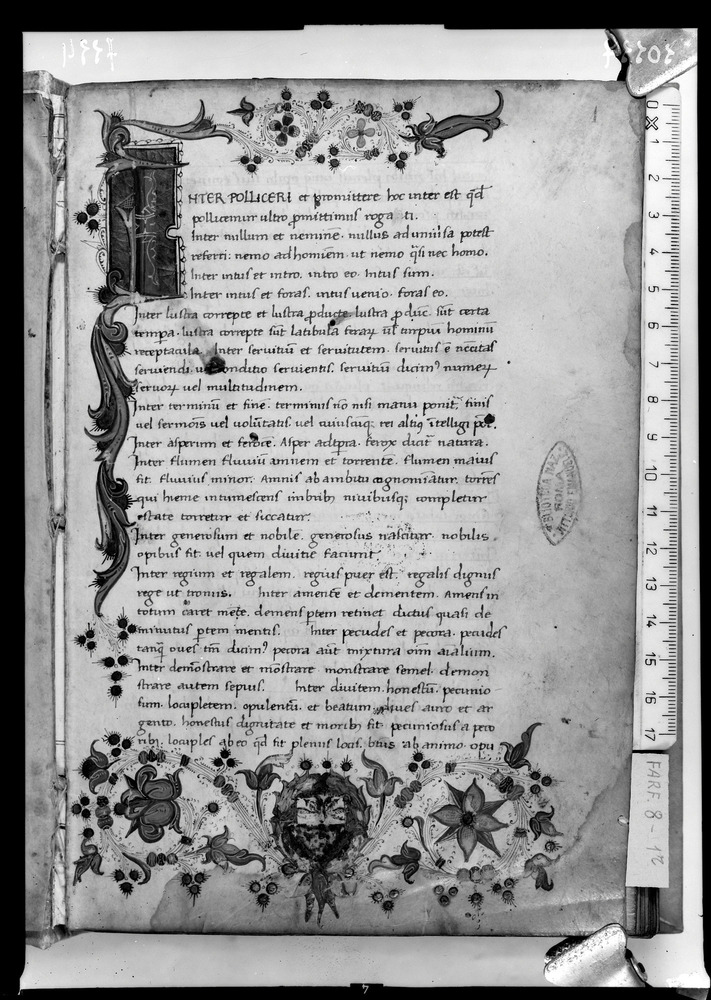 INTER POLLICERI et promittere hoc inter est qđ
pollicemur ultro ꝓmittimus rogati.
Inter nullum et neminē. nullus ad omnia potest
referri: nemo ad hominem. ut nemo q̃si nec homo.
Inter intus et intro. intro eo. Intus sum.
Inter intus et foras. intus uenio. foras eo.
Inter lustra correpte et lustra ꝓducte. lustra ꝓduc. sūt certa
tempa. lustra correpte sūt latibula feraꝝ uł turpiū hominū
receptacula. Inter seruitiū et seruitutem. seruitus ē nēcitas
seruiendi. conditio seruientis. seruitiū dicimꝰ numeꝝ
seruoꝝ uel multitudinem.
Inter terminū et finē. terminus nō nisi manu ponit̄. finis
uel sermōis uel uolūtatis uel cuiuscuiqꝫ rei altiꝰ ītelligi pōt.
Inter asperum et ferocē. Asper ad tpra. ferox dicit̄ natura.
Inter flumen fluuiū amnem et torrentē. flumen maius
fit. fluuius minor. Amnis ab ambitu cognomiāatur. torrēs
qui hieme intumescens imbribꝫ niuibusqꝫ completur
estate torretur et siccatur.
Inter generosum et nobilē. generosus nascitur. nobilis
opibus fit. uel quem diuitie faciunt.
Inter regium et regalem. regius puer est. regalis dignus
rege ut tronus. Inter amentē et dementem. Amens in
totum caret mēte. demens ꝑtem retinet dictus quasi de
minutus ꝑtem mentis. Inter pecudes et pecora. pecudes
tanq̃ oues tm̄ dicimꝰ pecora aūt mixtura om̄ aīalium.
Inter demōstrare et mōstrare. monstrare semel. demon
strare autem sepius. Inter diuitem. honestū. pecunio
sum. locupletem. opulentū. et beatum. diues auro et ar
gento. honestus dignitate et moribꝫ fit. pecuniosus a peco
ribꝫ. locuples ab eo qđ fit plenus locis. btus ab animo. opu
BIBLIOTECA NAZ.
ROMA
VITTORIO EMANUELE
0 1 2 3 4 5 6 7 8 9 10 11 12 13 14 15 16 17
FARF. 8 - 1r
7